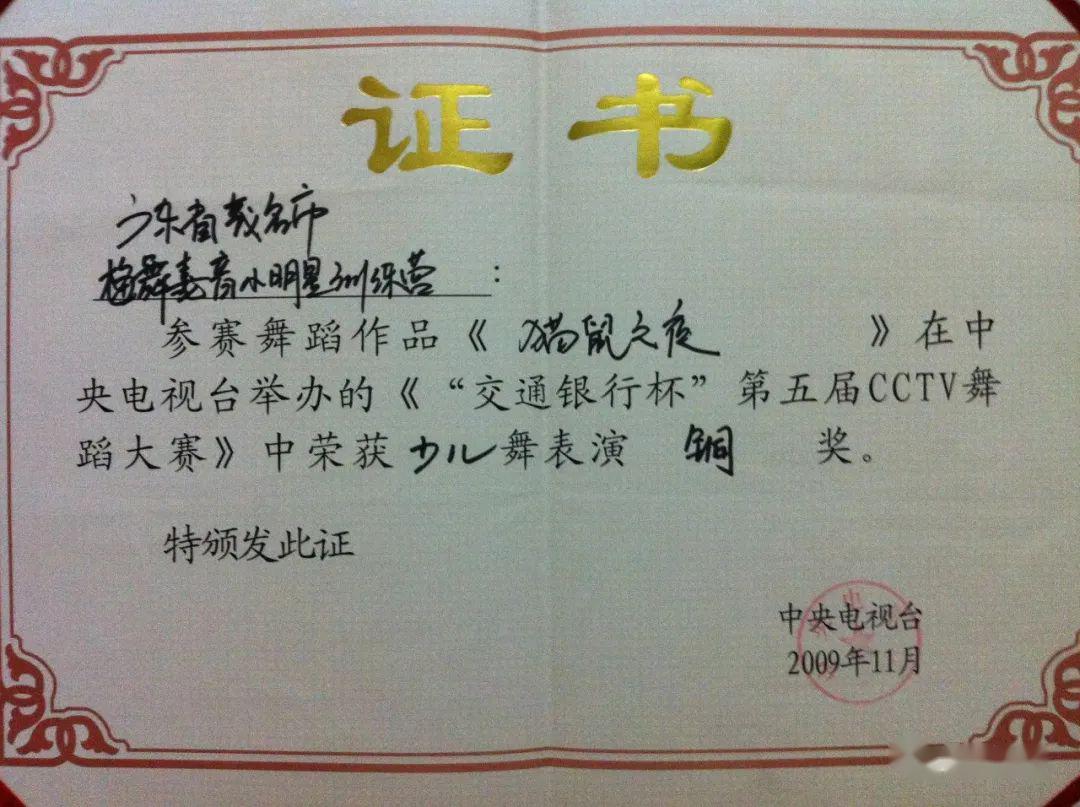 证书
广东省茂名市
梅舞春音小明星训练营：
参赛舞蹈作品《猫鼠之夜》在中
央电视台举办的《“交通银行杯”第五届CCTV舞
蹈大赛》中荣获少儿舞表演 铜 奖。
特颁发此证
中央电视台
2009年11月